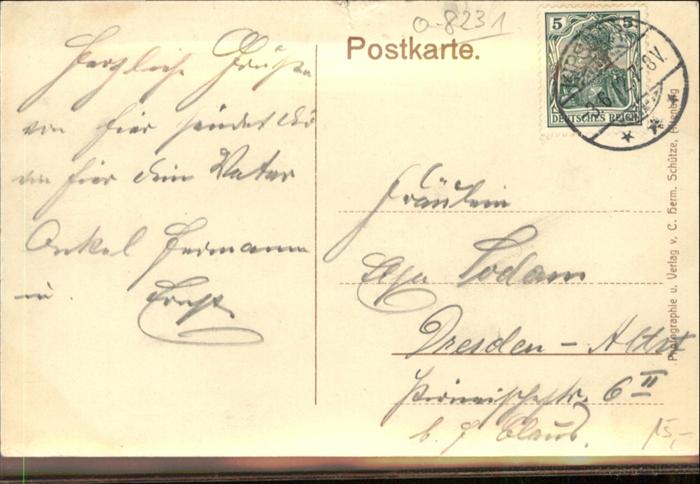 o-8231
Postkarte.
5 5
DEUTSCHES REICH
3.6.11. 7-8V.
Herzliche Grüße
von hier sendet
von hier dein Vater
Onkel Hermann
u. Ernst
Fräulein
Todam
Dresden - Altst
Pirnaischestr. 6 II
b. Claus.
15,-
Photographie u. Verlag v. C. Herm. Schütze,